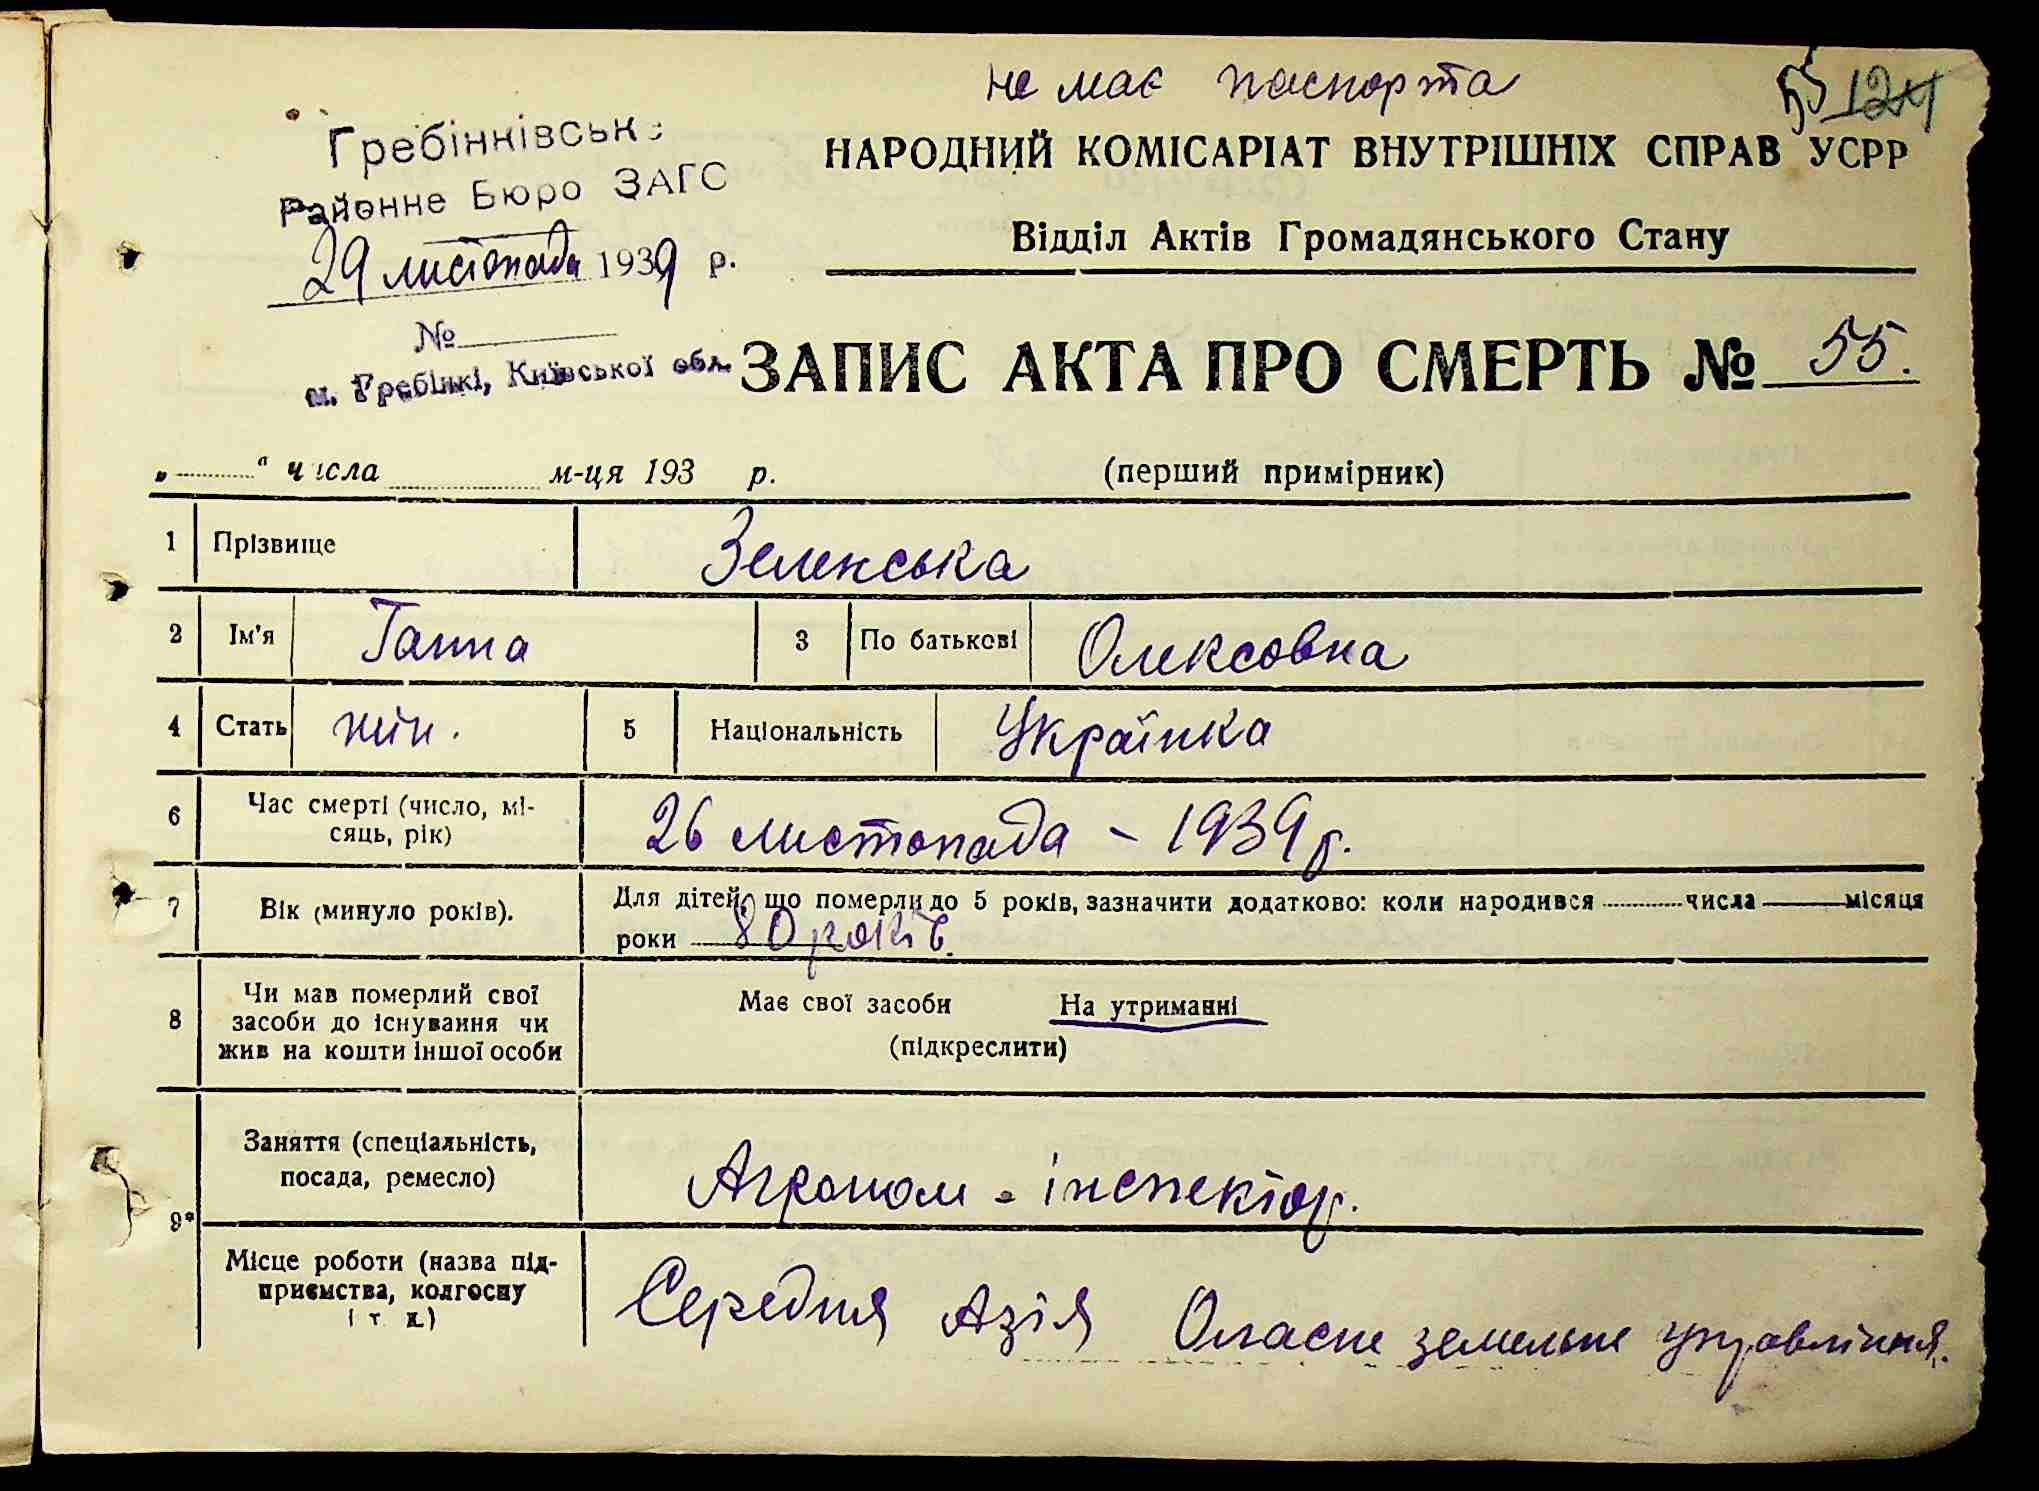 не має паспорта
55 124
Гребінківськ
Районне Бюро ЗАГС
29 листопада 1939 р.
№
м. Гребінкі, Київської обл.
НАРОДНИЙ КОМІСАРІАТ ВНУТРІШНІХ СПРАВ УСРР
Відділ Актів Громадянського Стану
ЗАПИС АКТА ПРО СМЕРТЬ № 55.
„ “ числа м-ця 193 р. (перший примірник)
1 Прізвище Зеленська
2 Ім'я Ганна 3 По батькові Олексовна
4 Стать жін. 5 Національність Українка
6 Час смерті (число, мі-
сяць, рік) 26 листопада - 1939 р.
7 Вік (минуло років). Для дітей, що померли до 5 років, зазначити додатково: коли народився числа місяця
роки 80 років.
8 Чи мав померлий свої
засоби до існування чи
жив на кошти іншої особи
Має свої засоби На утриманні
(підкреслити)
9* Заняття (спеціальність,
посада, ремесло) Агроном - інспектор.
Місце роботи (назва під-
приємства, колгоспу
і т. д.) Середня Азія Оласне земельне управління.